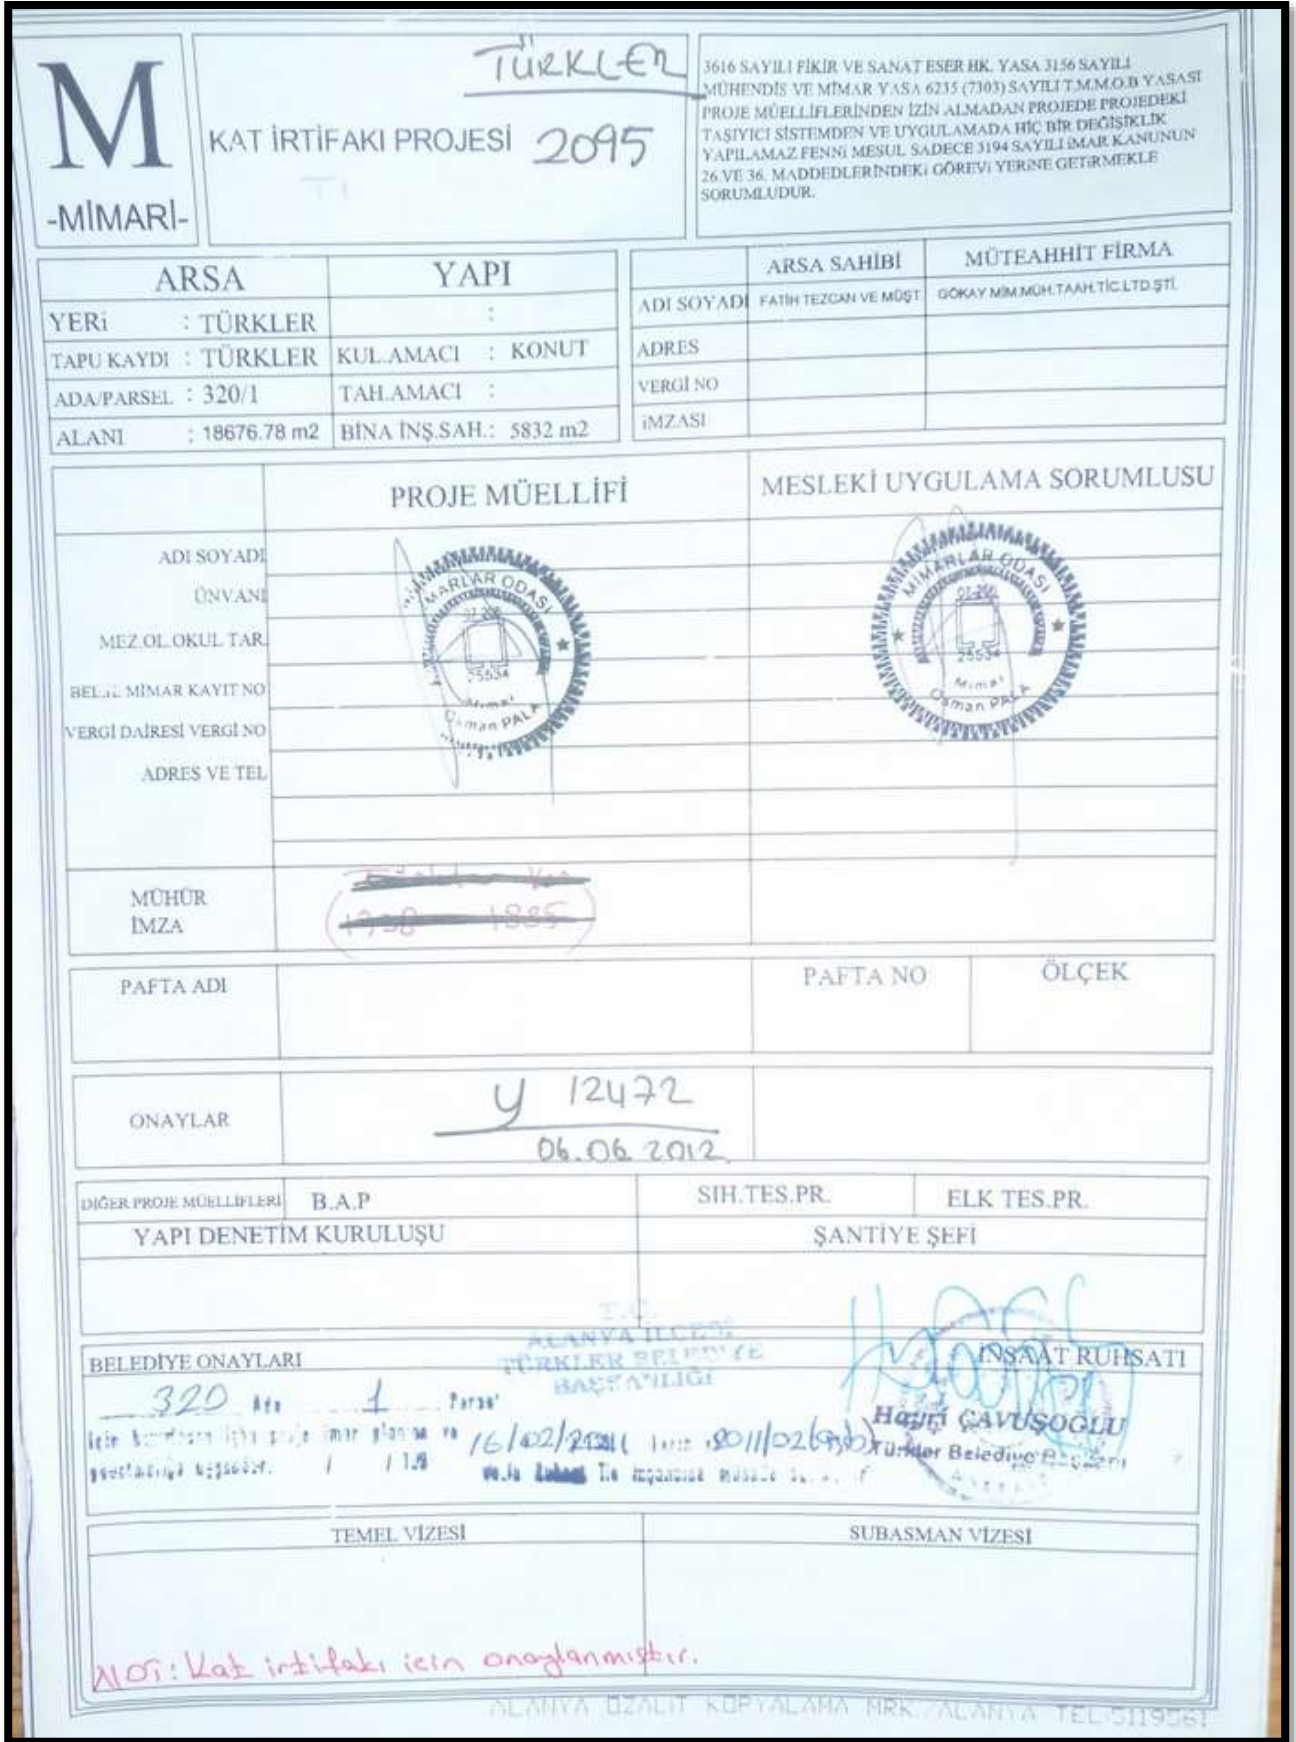 TÜRKLER
M
-MİMARİ-
KAT İRTİFAKI PROJESİ 2095
3616 SAYILI FİKİR VE SANAT ESER HK. YASA 3156 SAYILI
MÜHENDİS VE MİMAR YASA 6235 (7303) SAYILI T.M.M.O.B YASASI
PROJE MÜELLİFLERİNDEN İZİN ALMADAN PROJEDE PROJEDEKİ
TAŞIYICI SİSTEMDEN VE UYGULAMADA HİÇ BİR DEĞİŞİKLİK
YAPILAMAZ FENNi MESUL SADECE 3194 SAYILI iMAR KANUNUN
26.VE 36. MADDEDLERİNDEKi GÖREVi YERiNE GETiRMEKLE
SORUMLUDUR.
ARSA YAPI
YERi : TÜRKLER :
TAPU KAYDI : TÜRKLER KUL.AMACI : KONUT
ADA/PARSEL : 320/1 TAH.AMACI :
ALANI : 18676.78 m2 BİNA İNŞ.SAH.: 5832 m2
ARSA SAHİBİ MÜTEAHHİT FİRMA
ADI SOYADI FATİH TEZCAN VE MÜŞT. GÖKAY MİM.MÜH.TAAH.TİC.LTD.ŞTİ.
ADRES
VERGİ NO
iMZASI
PROJE MÜELLİFİ MESLEKİ UYGULAMA SORUMLUSU
ADI SOYADI
ÜNVANI
MEZ.OL.OKUL TAR.
MİMAR KAYIT NO
VERGİ DAİRESİ VERGİ NO
ADRES VE TEL
MARLAR ODASI
25534
Mimar
Osman PALA
MİMARLAR ODASI
25534
Mimar
Osman PALA
MÜHÜR
İMZA
PAFTA ADI PAFTA NO ÖLÇEK
ONAYLAR
y 12472
06.06.2012
DİĞER PROJE MÜELLİFLERİ B.A.P SIH.TES.PR. ELK TES.PR.
YAPI DENETİM KURULUŞU ŞANTİYE ŞEFİ
T.C.
ALANYA İLÇESİ
TÜRKLER BELEDİYE
BAŞKANLIĞI
BELEDİYE ONAYLARI İNŞAAT RUHSATI
320 Ada 1 Parsel
imar planına ve 16/02/2011
Hayri ÇAVUŞOĞLU
Türkler Belediye Başkanı
TEMEL VİZESİ SUBASMAN VİZESİ
NOT: Kat irtifakı için onaylanmıştır.
ALANYA OZALİT KOPYALAMA MRK./ALANYA TEL:5119561